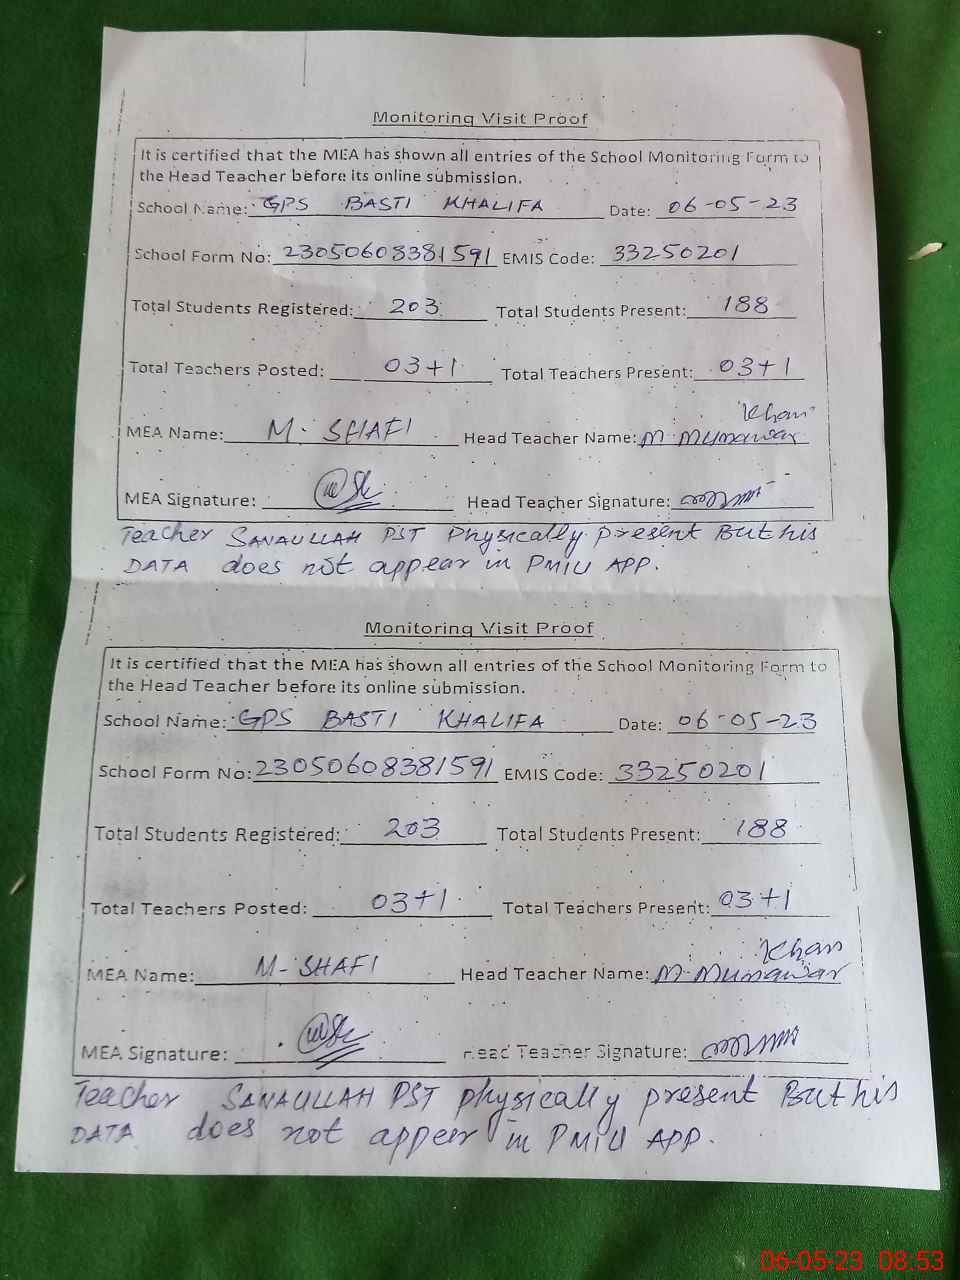 Monitoring Visit Proof
It is certified that the MEA has shown all entries of the School Monitoring Form to
the Head Teacher before its online submission.
School Name: GPS BASTI KHALIFA Date: 06-05-23
School Form No: 23050608381591 EMIS Code: 33250201
Total Students Registered: 203 Total Students Present: 188
Total Teachers Posted: 03+1 Total Teachers Present: 03+1
Khan
MEA Name: M. SHAFI Head Teacher Name: M. Munawar
MEA Signature: Head Teacher Signature:
Teacher SANAULLAH PST Physically present But his
DATA does not appear in PMIU APP.
Monitoring Visit Proof
It is certified that the MEA has shown all entries of the School Monitoring Form to
the Head Teacher before its online submission.
School Name: GPS BASTI KHALIFA Date: 06-05-23
School Form No: 23050608381591 EMIS Code: 33250201
Total Students Registered: 203 Total Students Present: 188
Total Teachers Posted: 03+1 Total Teachers Present: 03+1
Khan
MEA Name: M-SHAFI Head Teacher Name: M. Munawar
MEA Signature: Head Teacher Signature:
Teacher SANAULLAH PST physically present But his
DATA does not appear in PMIU APP.
06-05-23 08:53